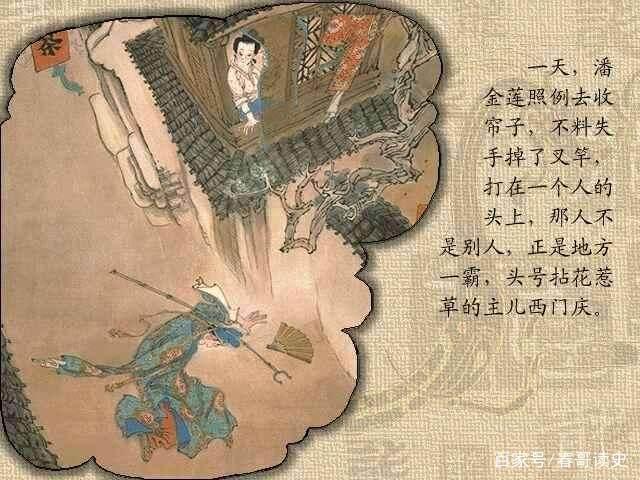 茶
一天，潘
金莲照例去收
帘子，不料失
手掉了叉竿，
打在一个人的
头上，那人不
是别人，正是地方
一霸，头号拈花惹
草的主儿西门庆。
百家号/春哥读史